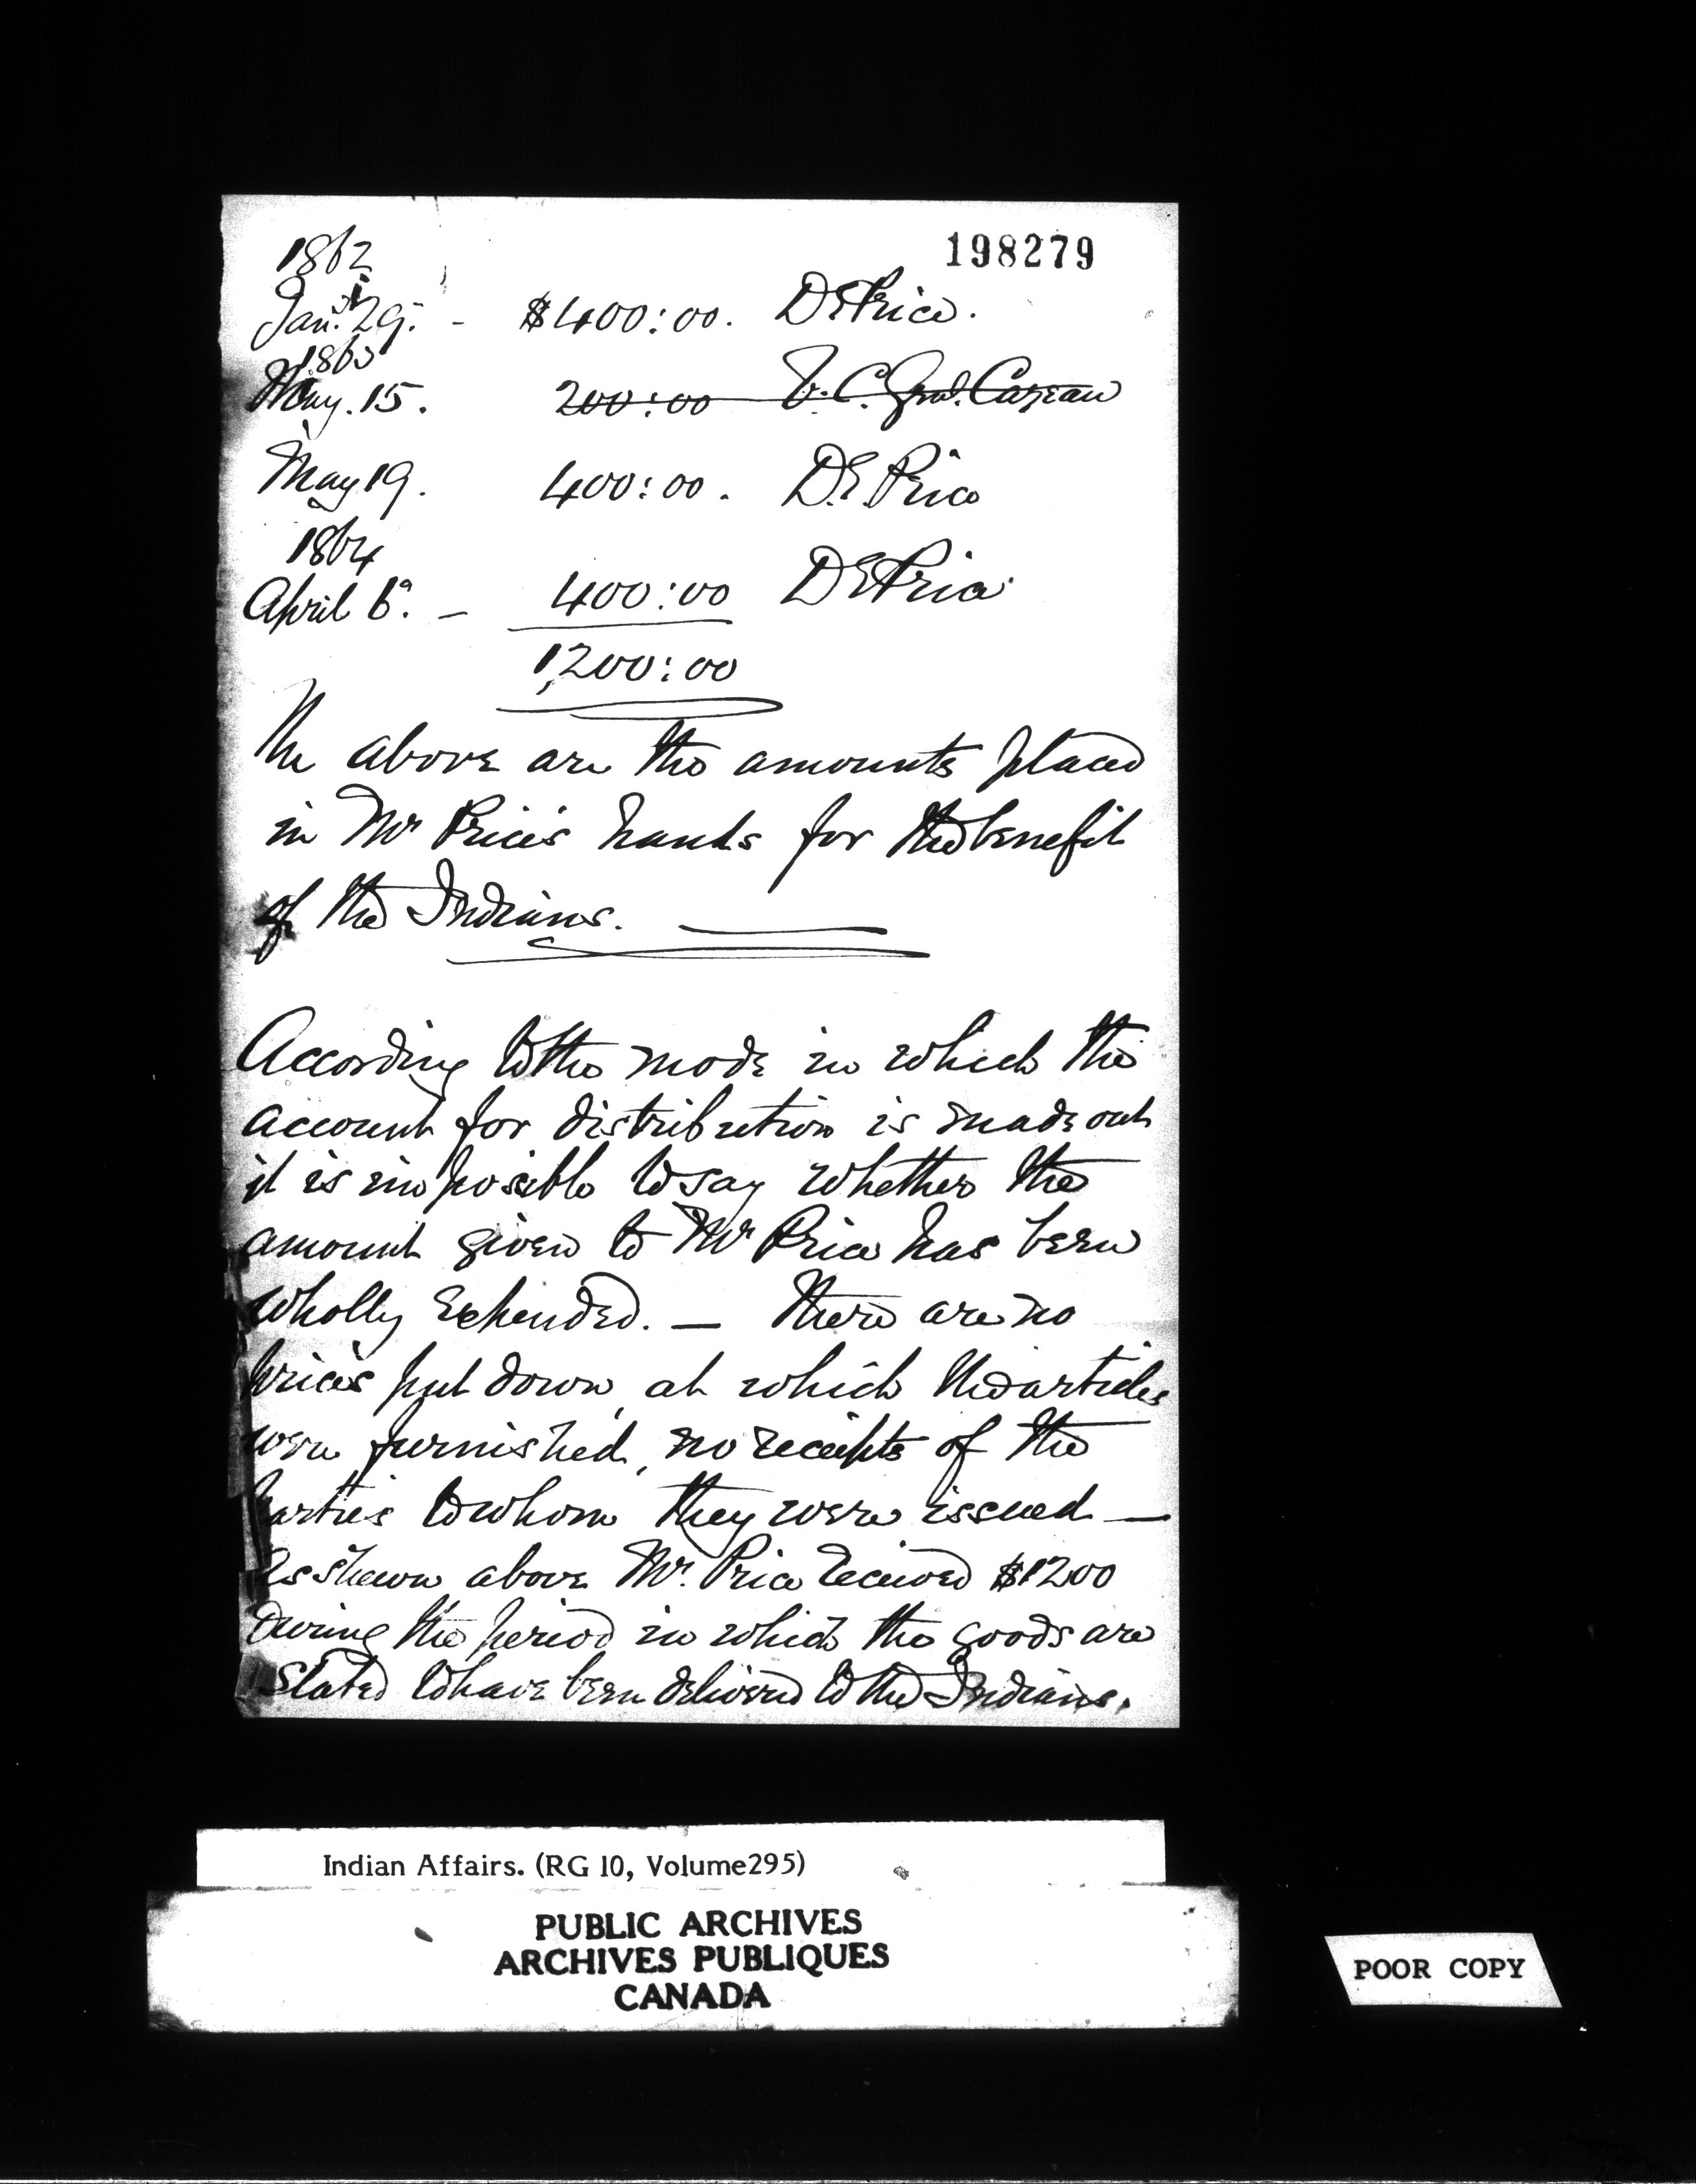 198279
1862
Jany. 29. - $400:00. D E Price.
1863
May. 15. 200:00 V. C. Genl. Cazeau
May 19. 400:00. D. E. Price
1864
April 6. - 400:00 D E Price
1,200:00
The above are the amounts placed
in Mr Price's hands for the benefit
of the Indians.
According to the mode in which the
account for distribution is made out
it is impossible to say whether the
amount given to Mr Price has been
wholly expended. — There are no
prices put down, at which the articles
were furnished, no receipts of the
parties to whom they were issued —
As shewn above Mr. Price received $1200
during the period in which the goods are
stated to have been delivered to the Indians.
Indian Affairs. (RG 10, Volume295)
PUBLIC ARCHIVES
ARCHIVES PUBLIQUES
CANADA
POOR COPY